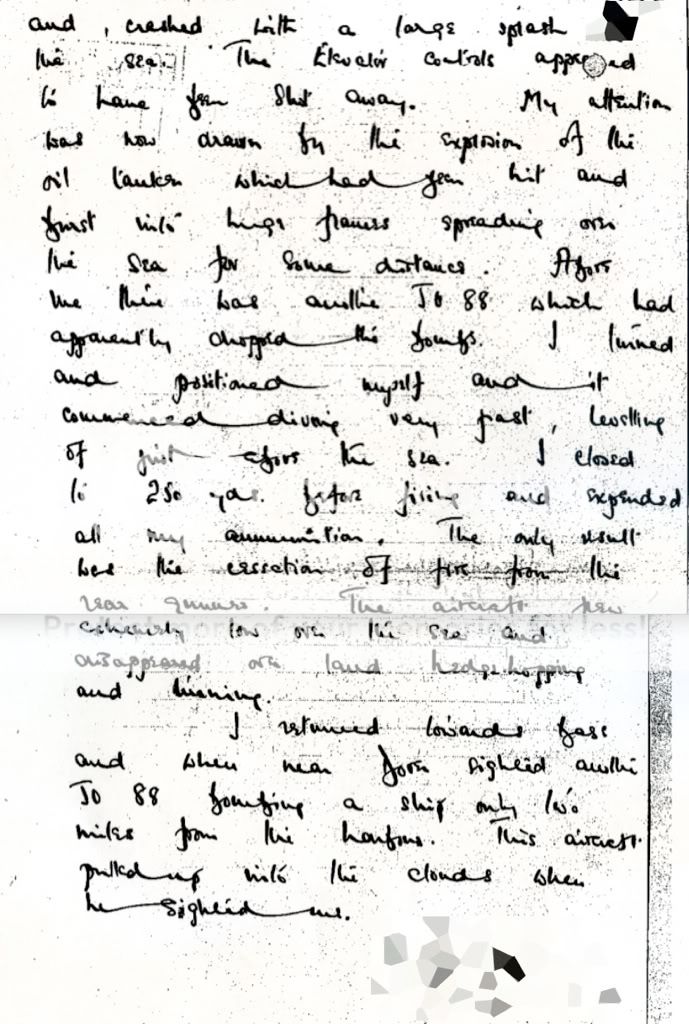 and, crashed with a large splash
the sea. The Elevator controls appeared
to have been shot away. My attention
was now drawn by the explosion of the
oil tanker which had been hit and
burst into huge flames spreading over
the sea for some distance. Before
me there was another JU 88 which had
apparently dropped the bombs. I turned
and positioned myself and it
commenced diving very fast, levelling
off just above the sea. I closed
to 250 yds. before firing and expended
all my ammunition. The only result
was the cessation of fire from the
rear gunners. The aircraft flew
extremely low over the sea and
disappeared over land hedgehopping
and turning.
I returned towards base
and when near sighted another
JU 88 bombing a ship only two
miles from the harbour. This aircraft
pulled up into the clouds when
he sighted me.